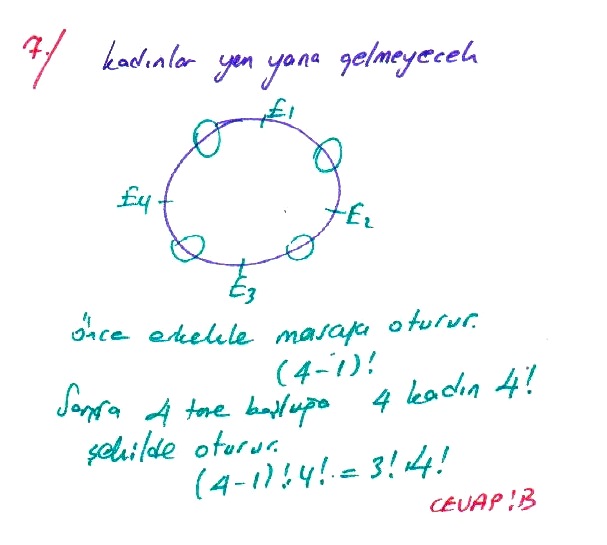 7./ kadınlar yan yana gelmeyecek
E1
E4
E2
E3
önce erkekle masaya oturur.
(4-1)!
Sonra 4 tane boşluğa 4 kadın 4!
şekilde oturur.
(4-1)!4! = 3!.4!
CEVAP!B